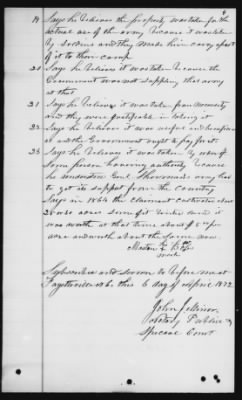 19 Says he believes the property was taken for the
actual use of the army because it was taken
by soldiers and they made him carry a part
of it to their camp
20 Says he believes it was taken because the
Government was not supplying that army
at that
21 Says he believes it was taken from necessity
and they were justifiable in taking it
22 Says he believes it was and
the Government ought to pay for it
23 Says he believes it was taken by order of
some person having authority because
he understood Genl. Shermans army had
to get its support from the country
Says in 1864 the claimant
acres it
was worth at that time about
acre and worth about the same now.
his
mark
Subscribed and sworn to before me at
Fayetteville this 6 day of 1872
John
Notary Public &
Special Comr